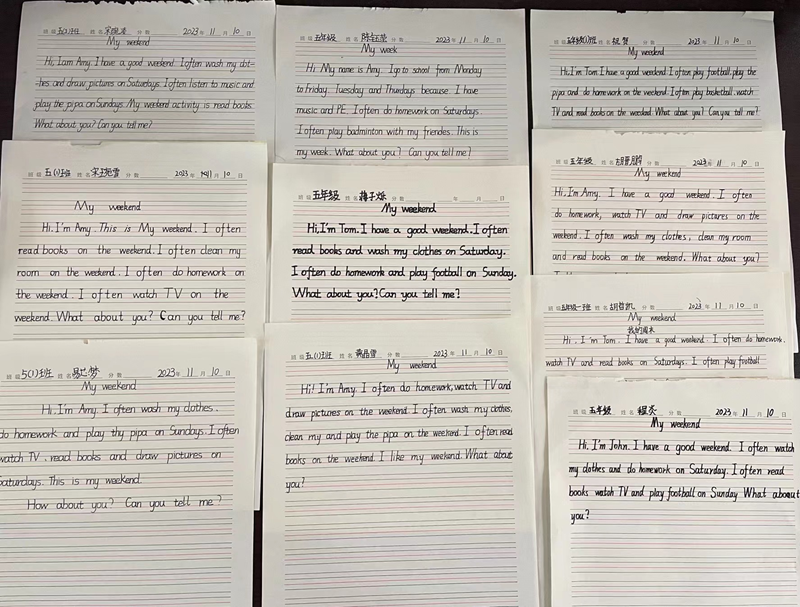 班级 五(1)班 姓名 分数 2023年 11月 10日
My weekend
Hi, I am Amy. I have a good weekend. I often wash my clot-
-hes and draw pictures on Saturdays. I often listen to music and
play the pipa on Sundays. My weekend activity is read books.
What about you? Can you tell me?
班级 五年级 姓名 分数 2023年 11月 10日
My week
Hi. My name is Amy. I go to school from Monday
to Friday. Tuesday and Thurdays because I have
music and PE. I often do homework on Saturdays.
I often play badminton with my friendes. This is
my week. What about you? Can you tell me?
班级 五年级(1)班 姓名 祝贺 分数 2023年 11月 10日
My weekend
Hi, I'm Tom. I have a good weekend. I often play football, play the
pipa and do homework on the weekend. I often play basketball, watch
TV and read books on the weekend. What about you? Can you tell me?
班级 五(1)班 姓名 分数 2023年 11月 10日
My weekend
Hi. I'm Amy. This is My weekend. I often
read books on the weekend. I often clean my
room on the weekend. I often do homework on
the weekend. I often watch TV on the
weekend. What about you? Can you tell me?
班级 五年级 姓名 梅子烁 分数 年 月 日
My weekend
Hi, I'm Tom. I have a good weekend. I often
read books and wash my clothes on Saturday.
I often do homework and play football on Sunday.
What about you? Can you tell me?
班级 五年级 姓名 分数 2023年 11月 10日
My weekend
Hi, I'm Amy. I have a good weekend. I often
do homework, watch TV and draw pictures on the
weekend. I often wash my clothes, clean my room
and read books on the weekend. What about you?
班级 五年级一班 姓名 胡哲凯 分数 2023年 11月 10日
My weekend
我的周末
Hi, I'm Tom. I have a good weekend. I often do homework,
watch TV and read books on Saturdays. I often play football
班级 5(1)班 姓名 分数 2023年 11月 10日
My weekend
Hi. I'm Amy. I often wash my clothes.
do homework and play thy pipa on Sundays. I often
watch TV, read books and draw pictures on
Saturdays. This is my weekend.
How about you? Can you tell me?
班级 五(1)班 姓名 分数 2023年 11月 10日
My weekend
Hi! I'm Amy. I often do homework, watch TV and
draw pictures on the weekend. I often wash my clothes,
clean my and play the pipa on the weekend. I often read
books on the weekend. I like my weekend. What about
you?
班级 五年级 姓名 程炎 分数 2023年 11月 10日
My weekend
Hi, I'm John. I have a good weekend. I often watch
my clothes and do homework on Saturday. I often read
books watch TV and play football on Sunday What about
you?